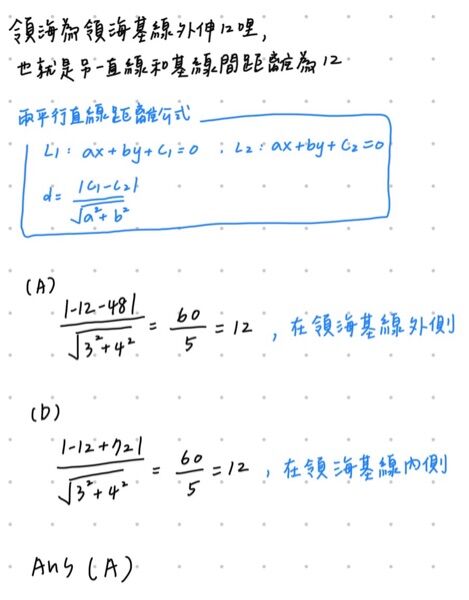 領海為領海基線外伸12哩,
也就是另一直線和基線間距離為12
兩平行直線距離公式
L1: ax+by+C1=0 ; L2: ax+by+C2=0
d= |C1-C2| / √(a²+b²)
(A)
|-12-48| / √(3²+4²) = 60/5 = 12 , 在領海基線外側
(D)
|-12+72| / √(3²+4²) = 60/5 = 12 , 在領海基線內側
Ans (A)